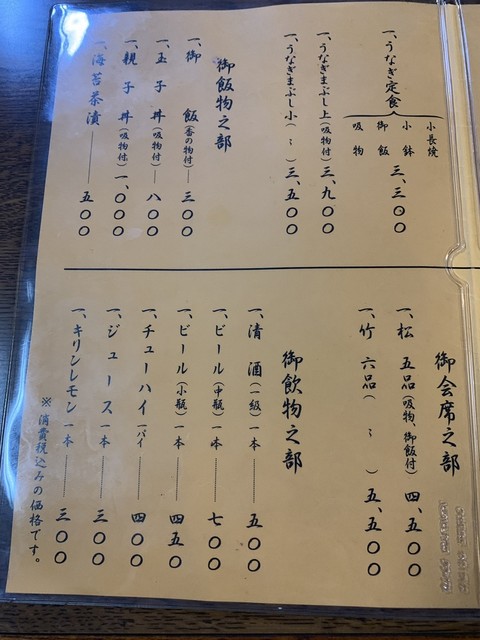 一、うなぎ定食 小長焼 小鉢 御飯 吸物 三、三〇〇
一、うなぎまぶし上(吸物付) 三、九〇〇
一、うなぎまぶし小( 〃 ) 三、五〇〇
御飯物之部
一、御飯(香の物付) 三〇〇
一、玉子丼(吸物付) 八〇〇
一、親子丼(吸物付) 一、〇〇〇
一、海苔茶漬 五〇〇
御会席之部
一、松 五品(吸物、御飯付) 四、五〇〇
一、竹 六品( 〃 ) 五、五〇〇
御飲物之部
一、清酒(一級) 一本 五〇〇
一、ビール(中瓶) 一本 七〇〇
一、ビール(小瓶) 一本 四五〇
一、チューハイ 一パイ 四〇〇
一、ジュース 一本 三〇〇
一、キリンレモン 一本 三〇〇
※消費税込みの価格です。